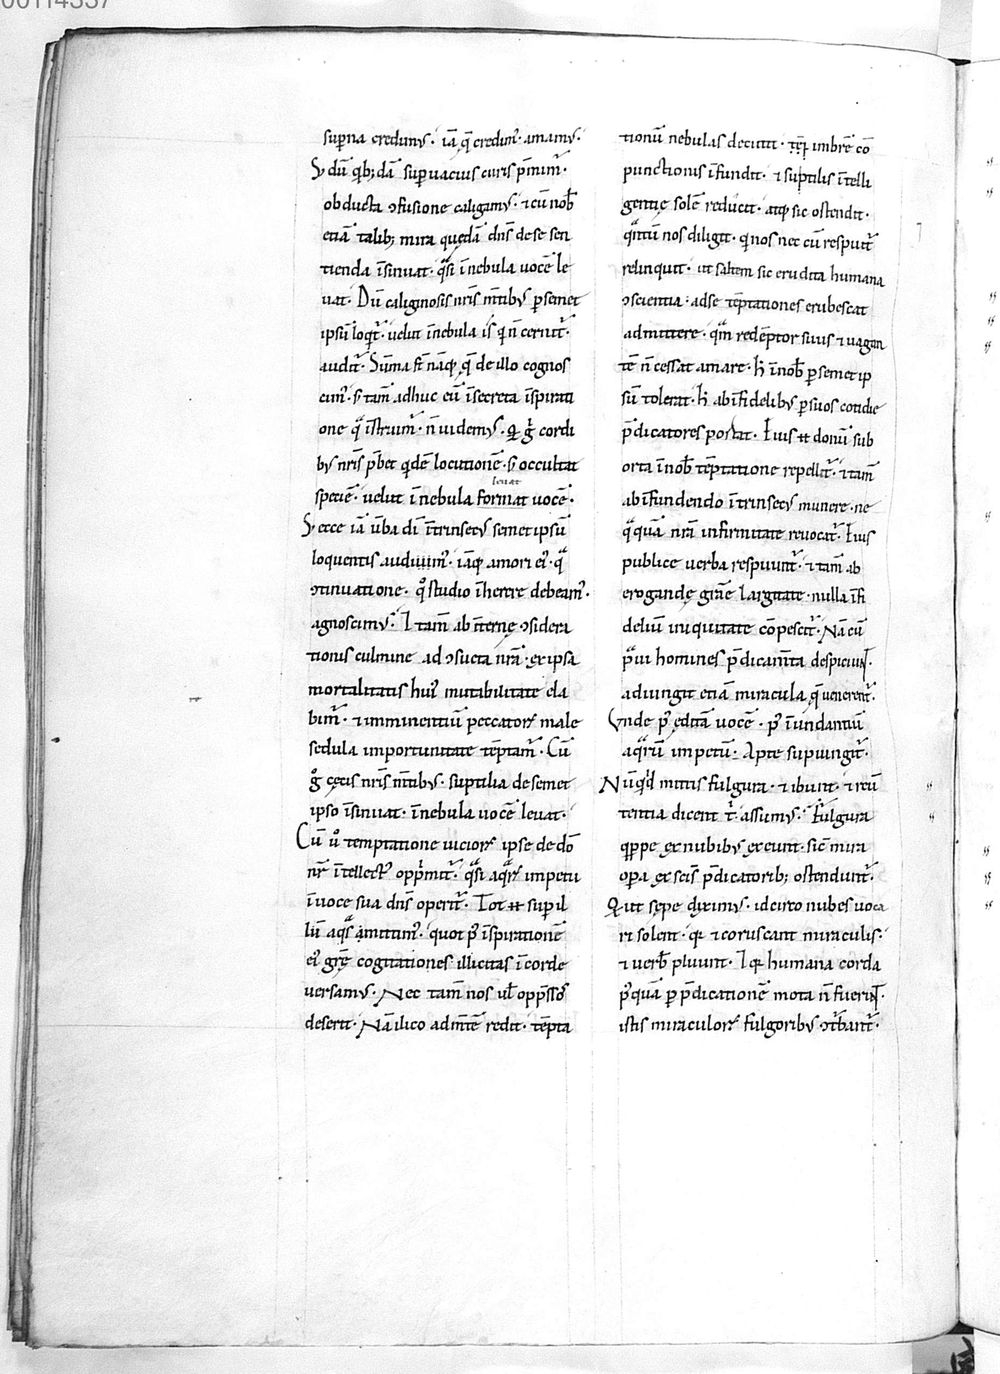 00114337
suꝑna credimꝰ · iā q̄ credim᷒ · amamꝰ ·
S; dū qb;dā suꝑuacuis curis p̄mim᷒ ·
obducta ↄfusione caligamꝰ · ⁊ cū nob̄
etiā talib; mira quędā dn̄s de se sen
tienda īsinuat · qͣsi ī nebula uocē le
uat · Dū caliginosis nr̄is m̄tibꝰ ꝑsemet
ipsū loqt᷒ · uelut ī nebula is q n̄ cernit᷒ ·
audit᷒ · Sūma st̄ nāq; q̄ de illo cognos
cim᷒ · s; tam̄ adhuc eū ī secreta īspirati
one qͣ īstruim᷒ · n̄ uidemꝰ · Q g̊ cordi
bꝰ nr̄is p̄bet qdē locutionē · s; occultat
speciē · uelut ī nebula format uocē ·
leuat
S; ecce iā ūba dī ītrinsecꝰ semetipsū
loquentis audiuim᷒ · iāq; amori ei᷒ · qͣ
ↄtinuatione · qͦ studio īherere debeam᷒ ·
agnoscimꝰ · I tam̄ ab īternę ↄsidera
tionis culmine ad ↄsueta nr̄a · ex ipsa
mortalitatis hui᷒ mutabilitate ela
bim᷒ · ⁊ imminentiū peccatoꝝ male
sedula importunitate tēptam᷒ · Cū
g̊ cęcis nr̄is m̄tibꝰ · suptilia de semet
ipso īsinuat · ī nebula uocē leuat ·
Cū ů temptatione uicioꝝ ipse de dō
nr̄ ītellect᷒ opp̄mit᷒ · qͣsi aqͣꝝ impetu
ī uoce sua dn̄s operit᷒ · Tot ⁊⁊ suꝑ il
lū aqͣs āmittim᷒ · quot pꝰ īspirationē
ei᷒ grę̄ cogitationes illicitas ī corde
uersamꝰ · Nec tam̄ nos ul̄ opp̄ssos
deserit · Nā ilico ad m̄tē redit · tēpta
tionū nebulas decutit · imbrē cō
punctionis īfundit · ⁊ suptilis ītelli
gentię solē reducit · atq; sic ostendit ·
qͣntū nos diligit · q nos nec cū resputt᷒
relinquit · ut saltem sic erudita humana
ↄscientia · ad se tēptationes erubescat
admittere · qm̄ redēptor suus ⁊ uagan
tē n̄ cessat amare · h̄ ī nob̄ ꝑ semet ip
sū tolerat · h̄ ab īfidelibꝰ ꝑ suos cotidie
p̄dicatores portat · Eius ⁊⁊ donū sub
orta ī nob̄ tēptatione repellit᷒ · ⁊ tam̄
ab īfundendo ītrinsecꝰ munere · ne
qͣquā nr̄a infirmitate reuocat᷒ · Eius
publice uerba respuunt᷒ · ⁊ tam̄ ab
erogandę gr̄ae largitate · nulla īfi
deliū iniquitate cōpescit᷒ · Nā cū
p̄ui homines p̄dicam̄ta despiciunt ·
adiungit etiā miracula q̄ uenerent᷒ ·
Vnde pꝰ editā uocē · pꝰ īundantiū
aqͣrū impetū · Apte supiungit᷒ ·
Nūqd mittis fulgura · ⁊ ibunt · ⁊ reu̅
tentia dicent t̄ · assumꝰ · Fulgura
qppe ex nubibꝰ exeunt · sic̄ mira
oꝑa ex sc̄is p̄dicatorib; ostendunt᷒ ·
Q ut sępe diximꝰ · idcirco nubes uoca
ri solent · q ⁊ coruscant miraculis ·
⁊ uerb̄ pluunt · I q humana corda
pꝰquā ꝑ p̄dicationē mota n̄ fuerint ·
istis miraculoꝝ fulgoribꝰ ↄt̄bant᷒ ·